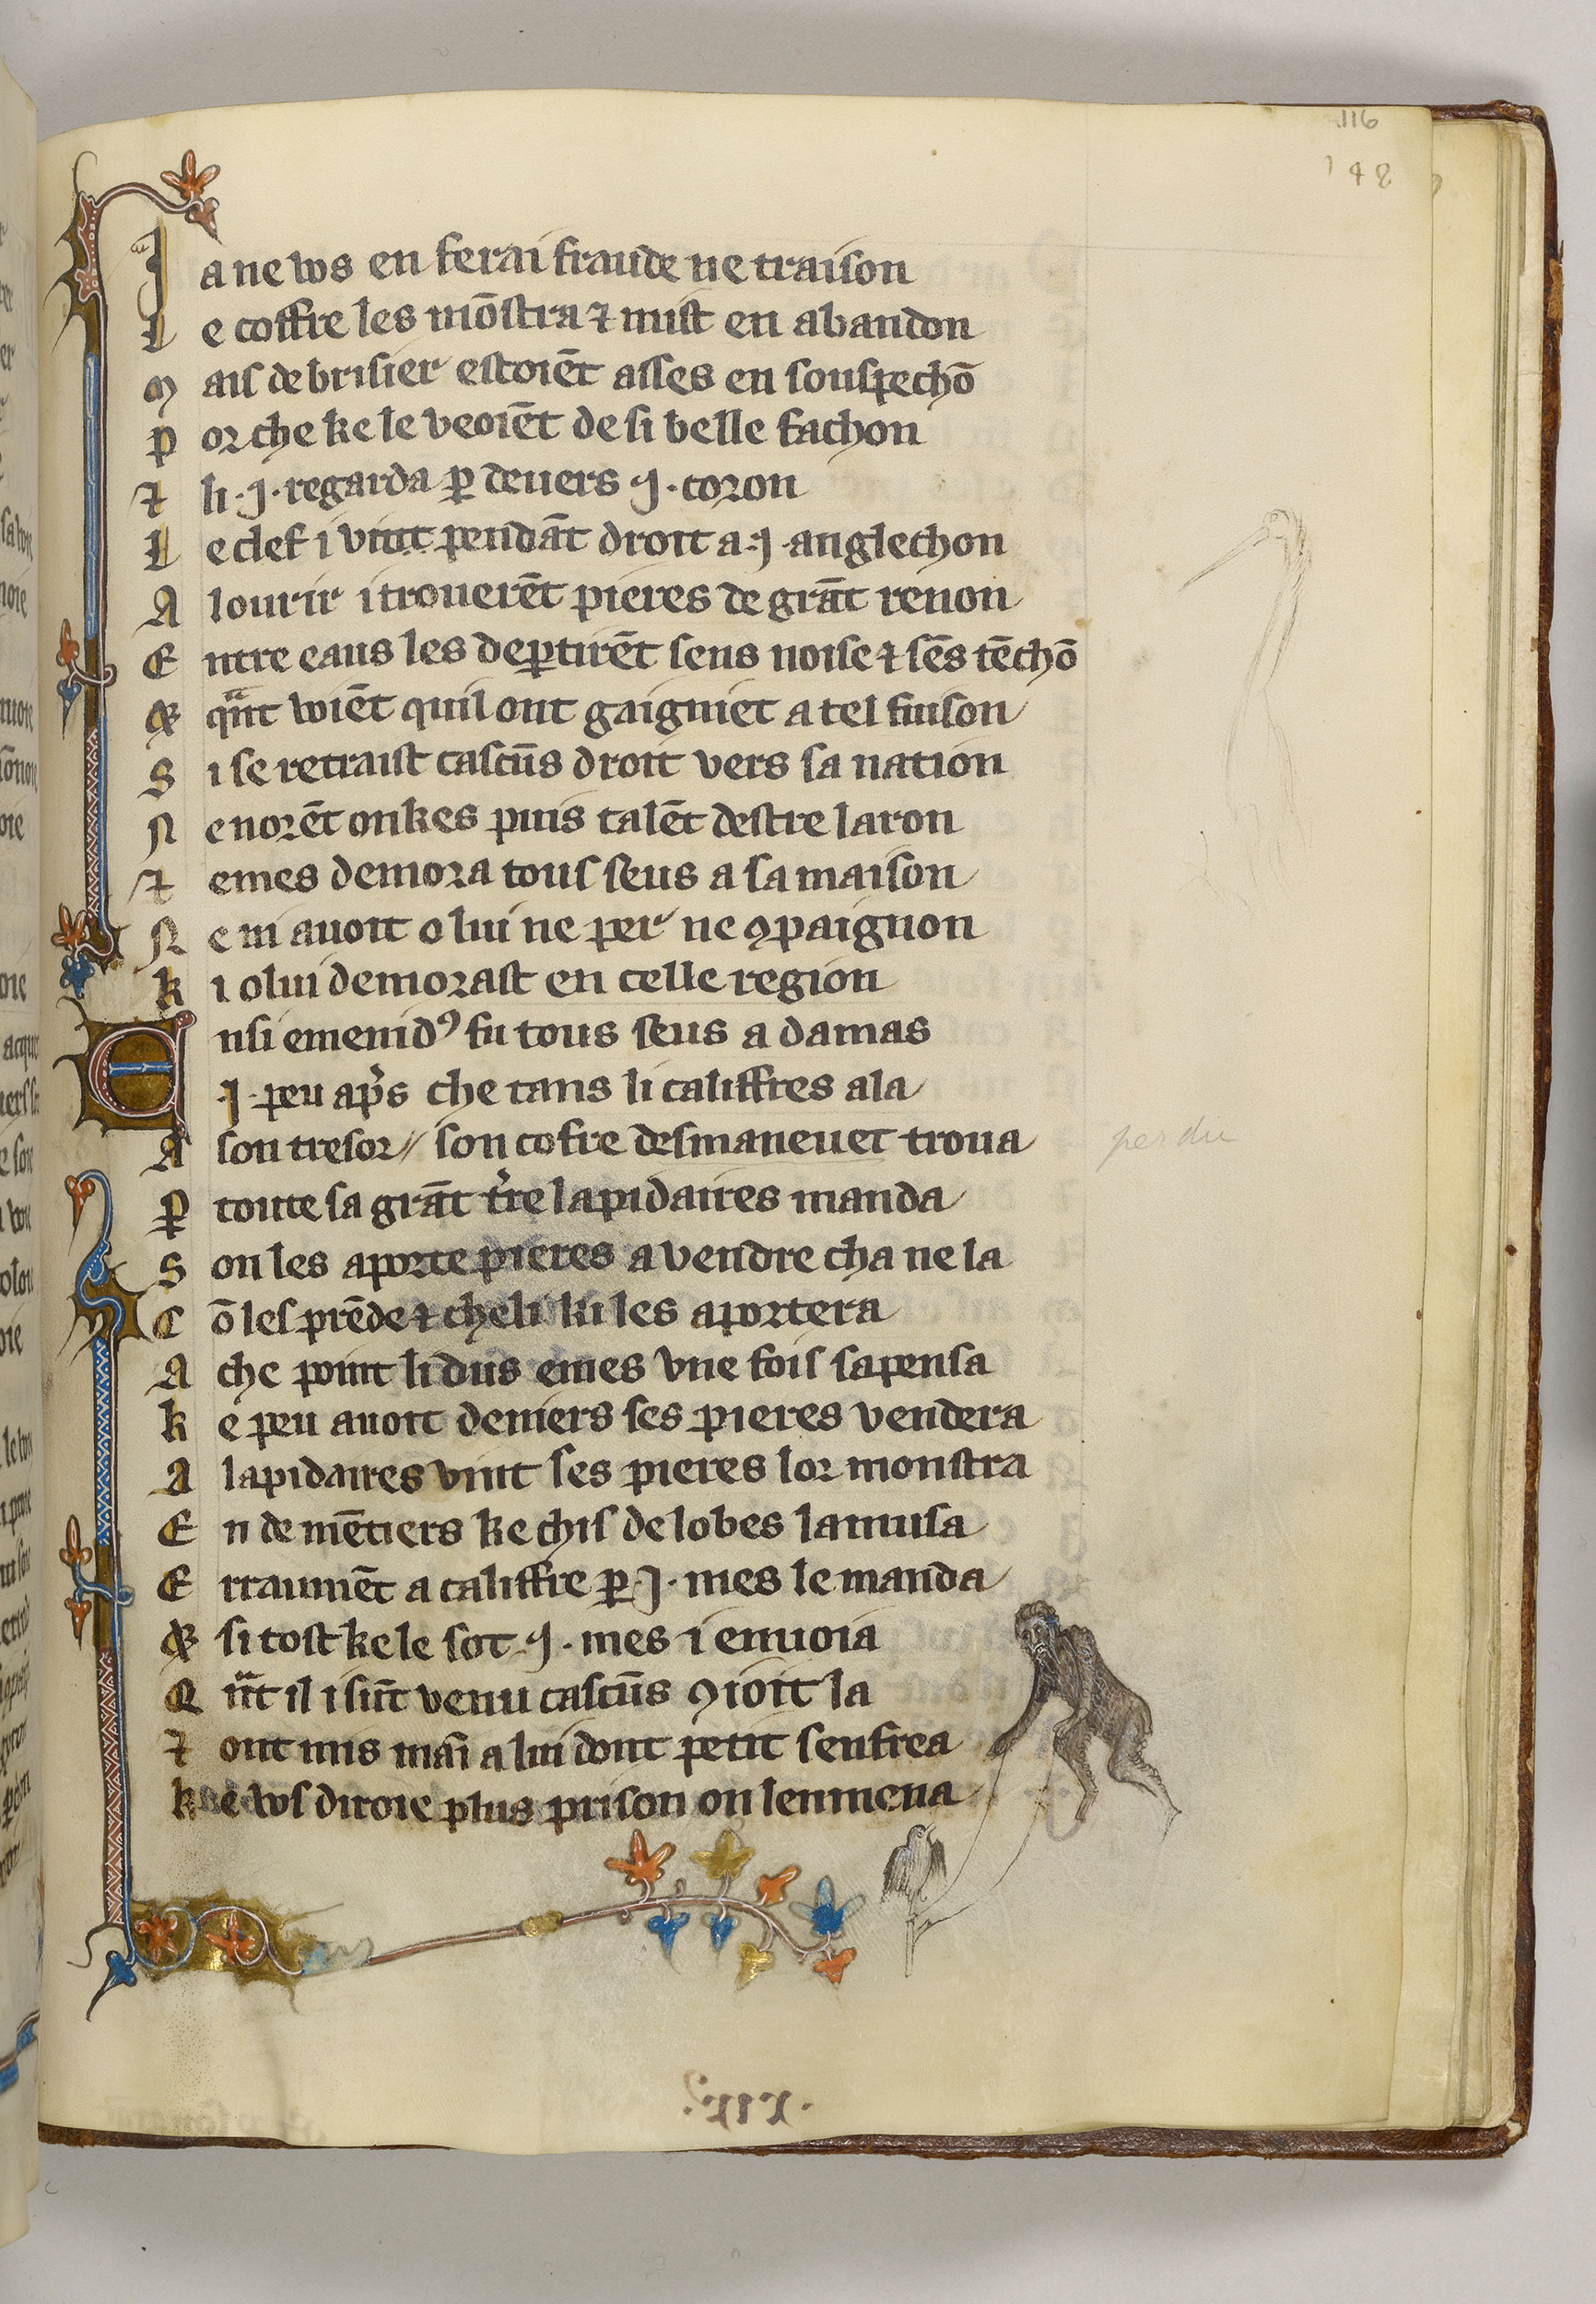 116
148
J a ne wos en ferai fraude ne traison
L e coffre les mōstra ⁊ mist en abandon
M ais de brisier estoiēt asses en souspechō
P or che ke le veoiēt de si belle fachon
⁊ li ·j· regarda ꝑ deuers ·j· coron
L e clef i vint pendāt droit a ·j· anglechon
A lourir i trouerēt pieres de grāt renon
E ntre eaus les deꝑtirēt sens noise ⁊ sēs tēchō
⁊ qͣnt voiēt quil ont gaigniet a tel fuison
S i se retraist cascūs droit vers sa nation
N e norēt onkes puis talēt destre laron
⁊ emes demora tous seus a sa maison
N e ni auoit o lui ne per ne ꝯpaignon
K i o lui demorast en celle region
E nsi emenidꝰ fu tous seus a damas
·j· peu ap̄s che tans li califfres ala
A son tresor // son cofre desmaneuet troua
perdu
P toute sa grāt t̄re lapidaires manda
S on les aporte pieres a vendre cha ne la
C ō les prēde ⁊ cheli ki les aportera
A che point li dus emes vne fois sapensa
K e peu auoit deniers ses pieres vendera
A lapidaires vint ses pieres lor monstra
E n demētiers ke chis de lobes lamusa
E rraumēt a califfre ꝑ ·j· mes le manda
⁊ si tost ke le sot ·j· mes i enuoia
Q n̄t il i sūt venu cascūs ꝯioit la
⁊ ont mis mai a lui dont petit senfrea
K e wos diroie plus prison on lenmena